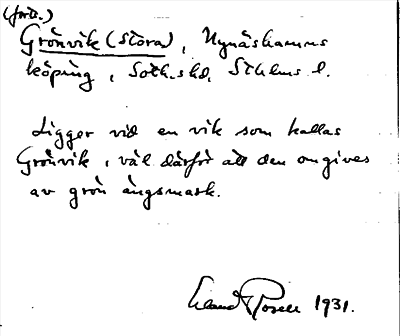 (forts.)
Grönvik (Stora), Nynäshamns
köping, Soth. hd, Sthlms l.
Ligger vid en vik som kallas
Grönvik, väl därför att den omgives
av grön ängsmark.
1931.